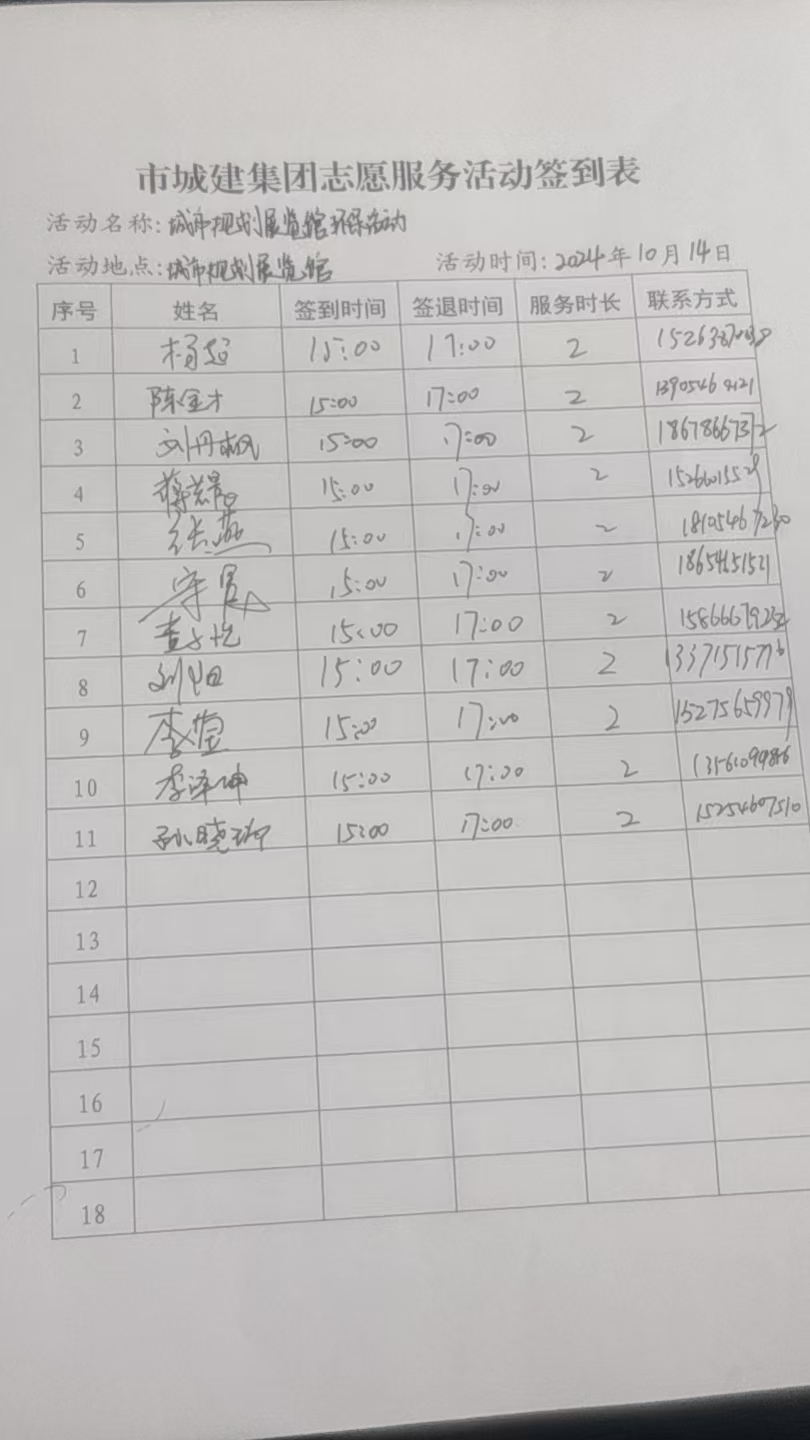 市城建集团志愿服务活动签到表
活动名称：城市规划展览馆环保活动
活动地点：城市规划展览馆 活动时间：2024年10月14日
序号 姓名 签到时间 签退时间 服务时长 联系方式
1 杨超 15:00 17:00 2
2 陈金才 15:00 17:00 2
3 刘丹枫 15:00 17:00 2 18678667372
4 15:00 17:00 2
5 张燕 15:00 17:00 2 18105467230
6 15:00 17:00 2 18654651521
7 15:00 17:00 2
8 15:00 17:00 2 13371515776
9 李莹 15:00 17:00 2 15275659979
10 李泽坤 15:00 17:00 2
11 孙晓珊 15:00 17:00 2 15254607510
12
13
14
15
16
17
18